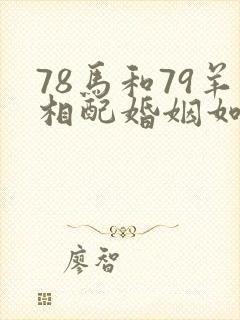 78馬和79羊
相配婚姻如
廖智